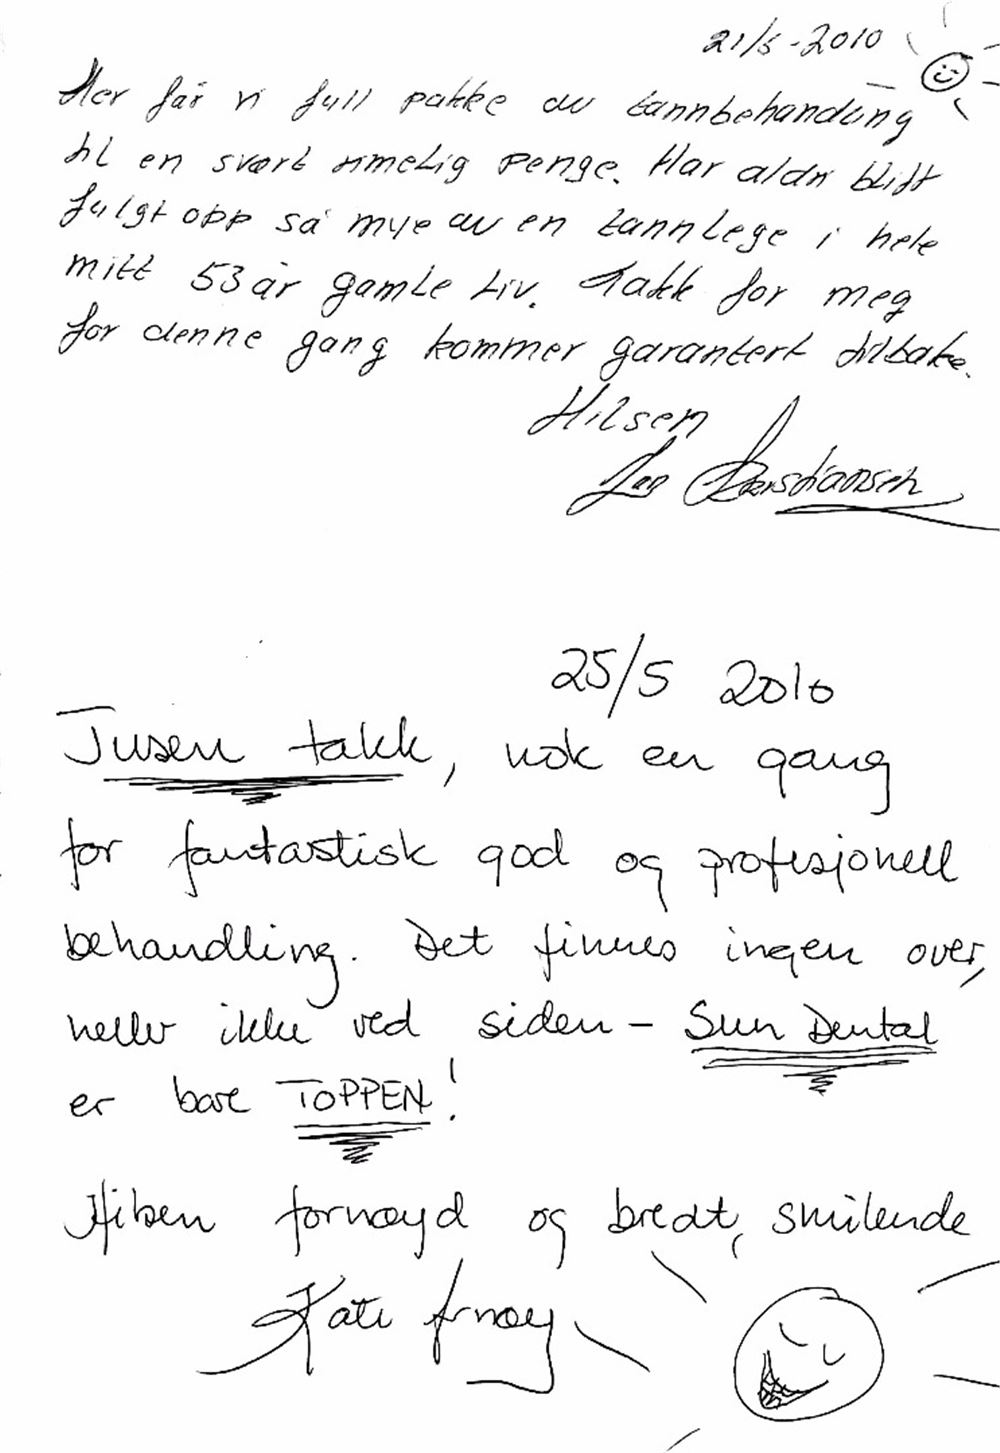 21/5-2010
Her får vi full pakke av tannbehandling
til en svært rimelig penge. Har aldri blitt
fulgt opp så mye av en tannlege i hele
mitt 53 år gamle liv. Takk for meg
for denne gang kommer garantert tilbake.
Hilsen
Jan Kristiansen
25/5 2010
Tusen takk, nok en gang
for fantastisk god og profesjonell
behandling. Det finnes ingen over,
heller ikke ved siden – Sun Dental
er bare TOPPEN!
Hilsen fornøyd og bredt, smilende
Kate